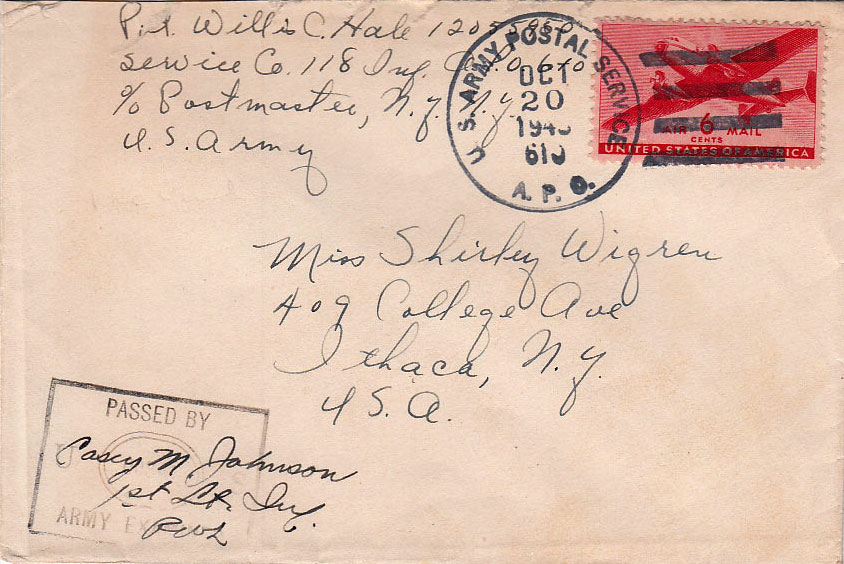 Pvt. Willis C. Hale
Service Co. 118 Inf.
% Postmaster, N.Y. N.Y.
U.S. Army
U.S. ARMY POSTAL SERVICE
OCT
20
A.P.O.
AIR 6 MAIL
CENTS
UNITED STATES OF AMERICA
Miss Shirley Wigren
409 College Ave
Ithaca, N.Y.
U.S.A.
PASSED BY
Casey M Johnson
1st Lt. Inf.
ARMY